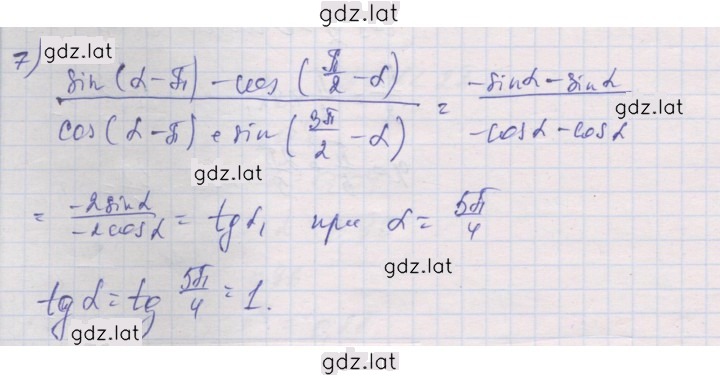 gdz.lat
7) gdz.lat
sin(α-π) - cos(π/2 - α) / cos(α-π) + sin(3π/2 - α) = -sinα - sinα / -cosα - cosα
gdz.lat
gdz.lat
= -2sinα / -2cosα = tgα, при α = 5π/4
gdz.lat
tgα = tg 5π/4 = 1.
gdz.lat
gdz.lat